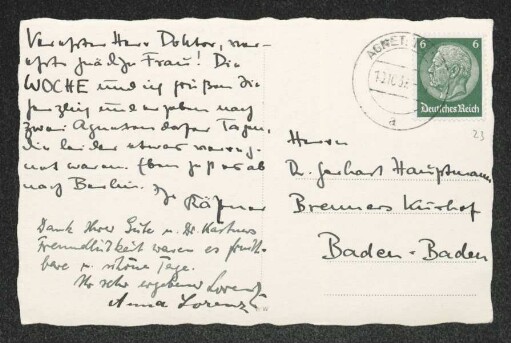 Verehrter Herr Doktor, ver-
ehrte gnädige Frau! Die
WOCHE und ich grüßen Sie
herzlich und ergeben nach
zwei Agnetendorfer Tagen,
die leider etwas verreg-
net waren. Eben geht es ab
nach Berlin. Ihr
Dank Ihrer Güte u. Dr. Kastners
Freundlichkeit waren es frucht-
bare u. schöne Tage.
Ihr sehr ergebener Lorenz
Anna Lorenz
AGNET
6 6
Deutsches Reich
a
23
Herrn
Dr. Gerhart Hauptmann
Brenners Kurhof
Baden-Baden